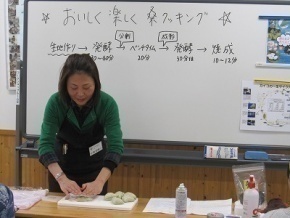 ☆ おいしく楽しく桑クッキング ☆
分割 成形
生地作り → 発酵 → ベンチタイム → 発酵 → 焼成
20分 10~12分